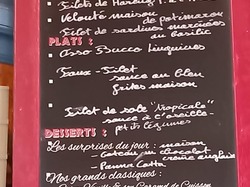 Filets de Hareng
Velouté maison de potimarron
Filet de sardines marinées
au basilic
PLATS :
Osso Bucco Linguines
Faux-Filet
sauce au bleu
frites maison
Filet de sole "tropicale"
sauce à l'oseille
petits légumes
DESSERTS :
Les surprises du jour : maison
- Gateau au chocolat
creme anglaise
- Panna Cotta
Nos grands classiques :